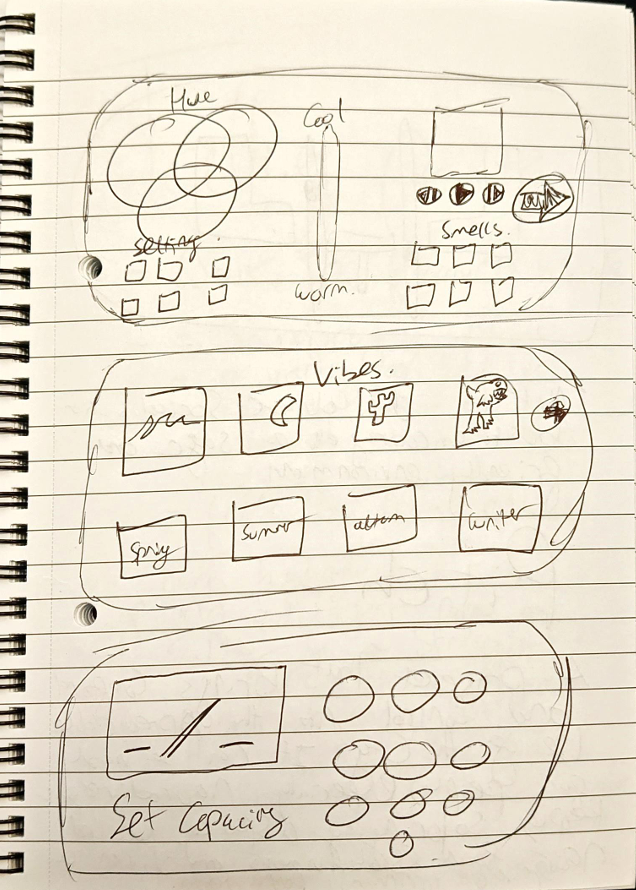 Hue
Cool
Setting.
Smells.
Worm.
Vibes.
Spring
Summer
Winter
Set Capacity